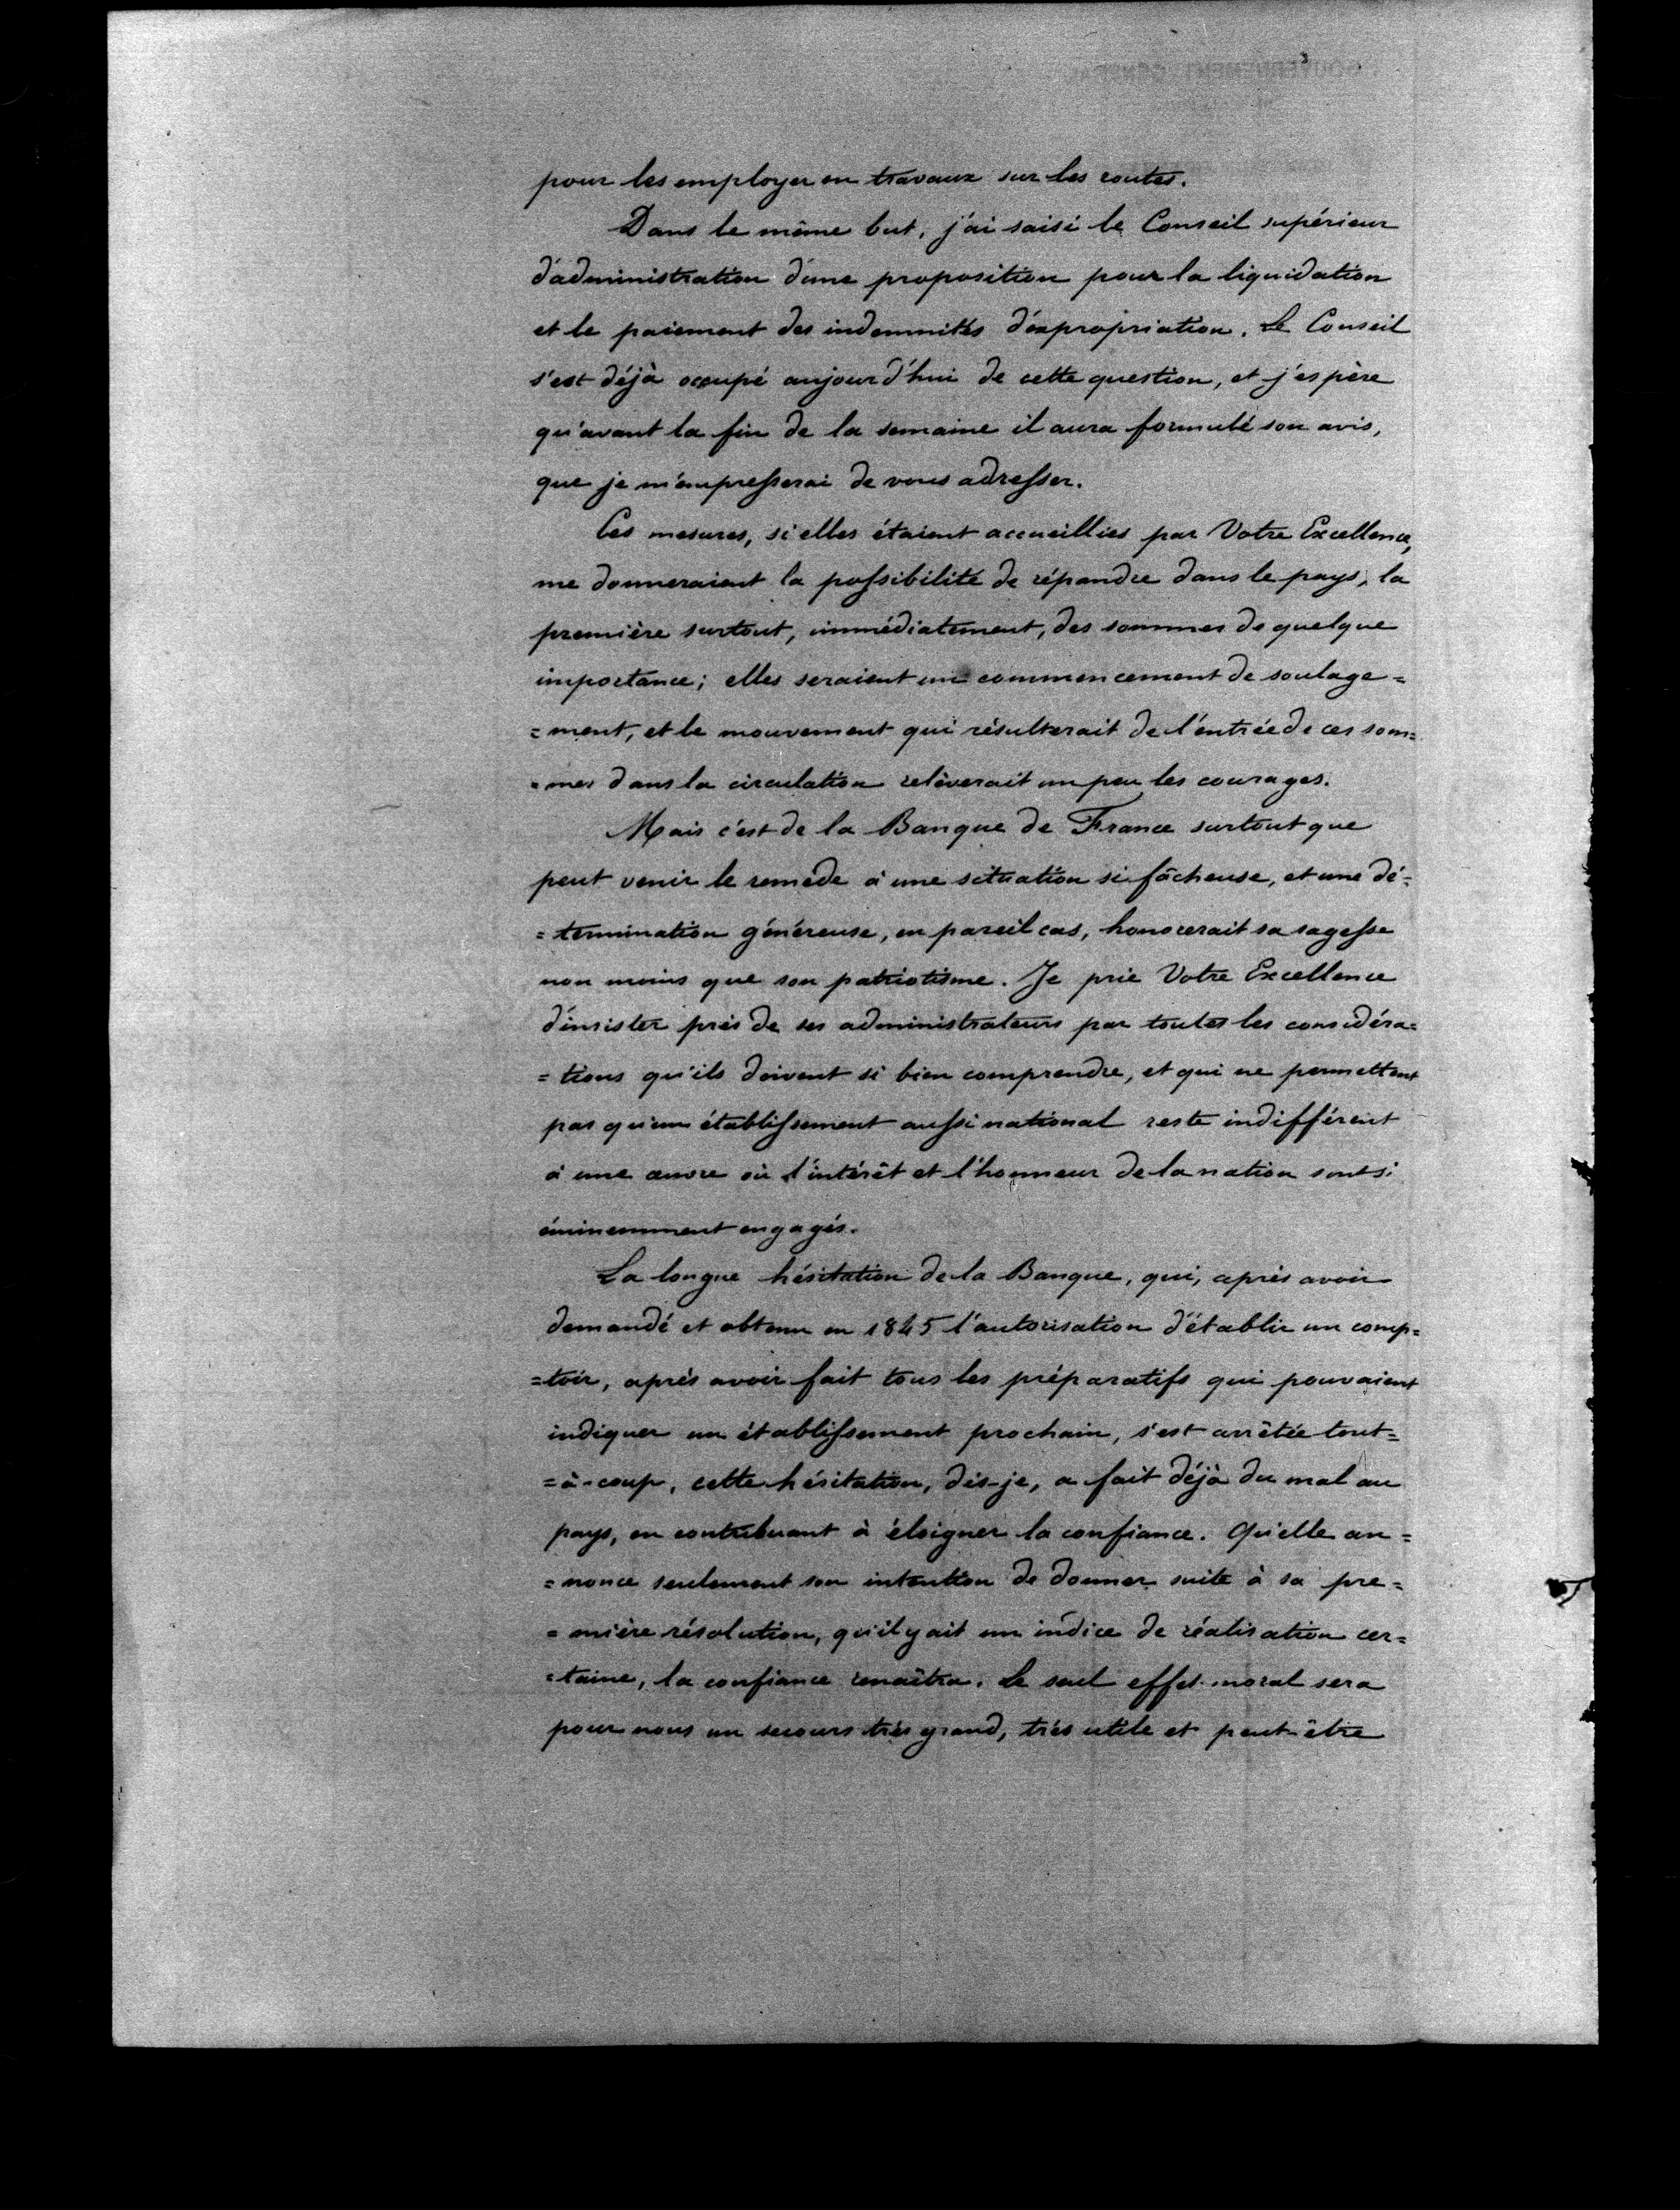 pour les employer en travaux sur les routes.
Dans le même but, j'ai saisi le Conseil supérieur
d'administration d'une proposition pour la liquidation
et le paiement des indemnités d'expropriation. Le Conseil
s'est déjà occupé aujourd'hui de cette question, et j'espère
qu'avant la fin de la semaine il aura formulé son avis,
que je m'empresserai de vous adresser.
Ces mesures, si elles étaient accueillies par Votre Excellence,
me donneraient la possibilité de répandre dans le pays, la
première surtout, immédiatement, des sommes de quelque
importance; elles seraient un commencement de soulage=
=ment, et le mouvement qui résulterait de l'entrée de ces som=
=mes dans la circulation relèverait un peu les courages.
Mais c'est de la Banque de France surtout que
peut venir le remède à une situation si fâcheuse, et une dé=
=termination généreuse, en pareil cas, honorerait sa sagesse
non moins que son patriotisme. Je prie Votre Excellence
d'insister près de ses administrateurs par toutes les considéra=
=tions qu'ils doivent si bien comprendre, et qui ne permettent
pas qu'un établissement aussi national reste indifférent
à une œuvre où l'intérêt et l'honneur de la nation sont si
éminemment engagés.
La longue hésitation de la Banque, qui, après avoir
demandé et obtenu en 1845 l'autorisation d'établir un comp=
=toir, après avoir fait tous les préparatifs qui pouvaient
indiquer un établissement prochain, s'est arrêtée tout=
=à-coup, cette hésitation, dis-je, a fait déjà du mal au
pays, en contribuant à éloigner la confiance. Qu'elle an=
=nonce seulement son intention de donner suite à sa pre=
=mière résolution, qu'il y ait un indice de réalisation cer=
=taine, la confiance renaîtra. Le seul effet moral sera
pour nous un secours très grand, très utile et peut-être